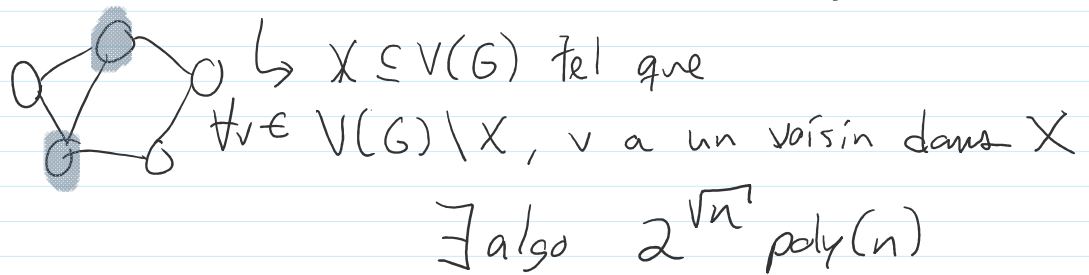 ↳ X ⊆ V(G) tel que
∀v ∈ V(G) \ X, v a un voisin dans X
∃ algo 2^√n poly(n)